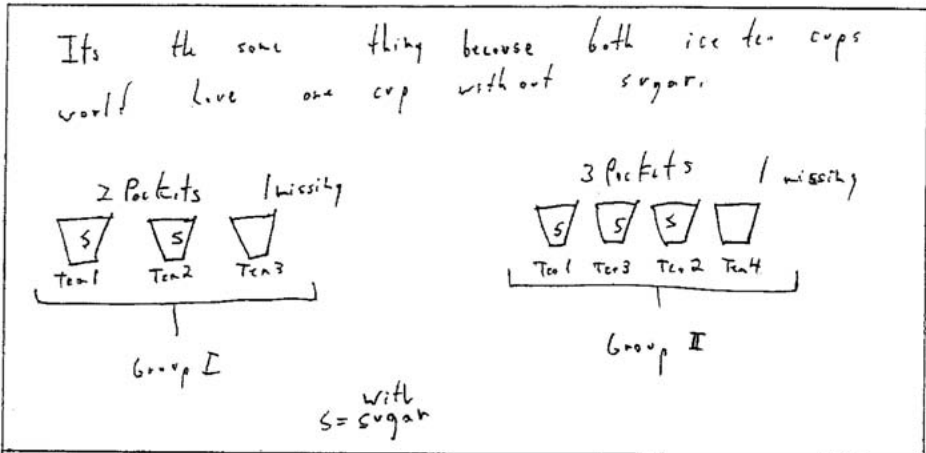 Its the same thing because both ice tea cups
would have one cup without sugar.
2 Packets 1 missing
S S
Tea 1 Tea 2 Tea 3
Group I
3 Packets 1 missing
S S S
Tea 1 Tea 3 Tea 2 Tea 4
Group II
with
S = sugar